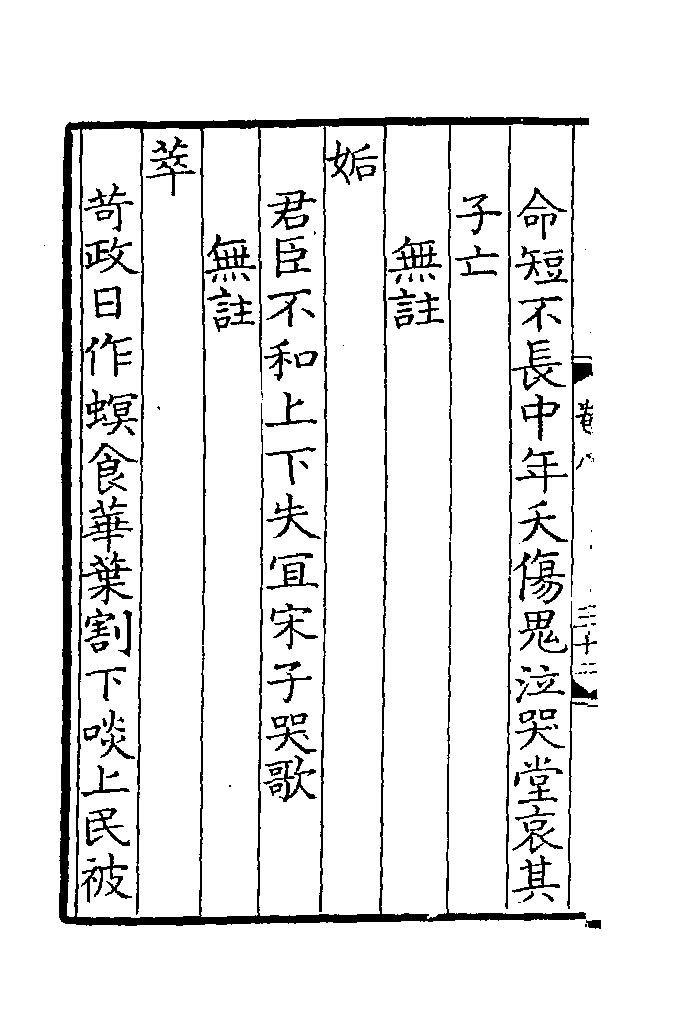 命短不長中年夭傷鬼泣哭堂哀其
子亡
無註
姤
君臣不和上下失宜宋子哭歌
無註
萃
苛政日作螟食華葉割下啖上民被
卷八
三十二